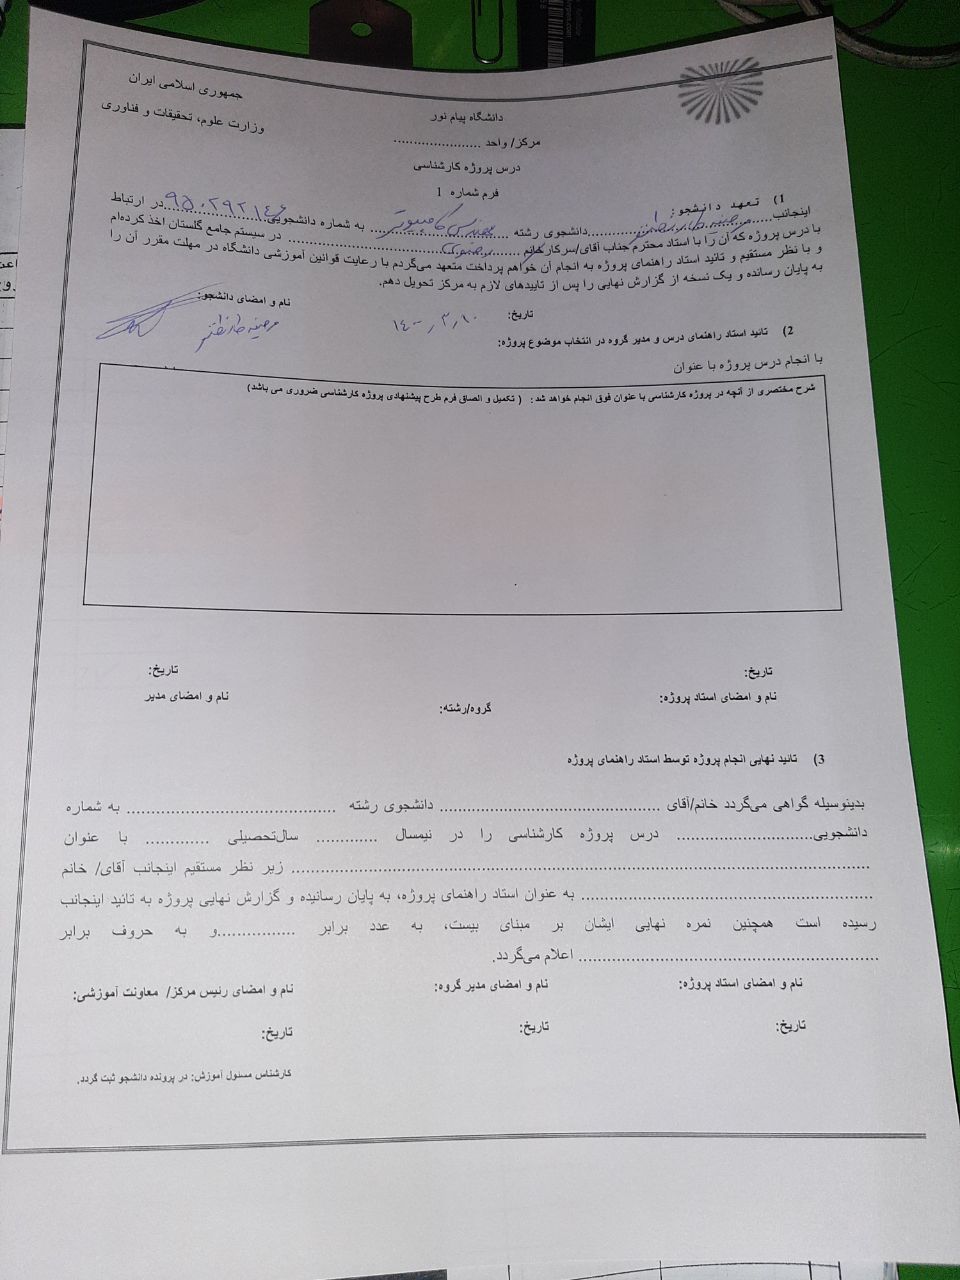 جمهوری اسلامی ایران
وزارت علوم، تحقیقات و فناوری
دانشگاه پیام نور
مرکز/ واحد ......................
درس پروژه کارشناسی
فرم شماره 1
1) تعهد دانشجو:
اینجانب ........ دانشجوی رشته مهندسی کامپیوتر به شماره دانشجویی ۹۵۰۲۹۲۱۴۶ در ارتباط
با درس پروژه که آن را با استاد محترم جناب آقای/سرکار خانم ........ در سیستم جامع گلستان اخذ کرده‌ام
و با نظر مستقیم و تائید استاد راهنمای پروژه به انجام آن خواهم پرداخت متعهد می‌گردم با رعایت قوانین آموزشی دانشگاه در مهلت مقرر آن را
به پایان رسانده و یک نسخه از گزارش نهایی را پس از تاییدهای لازم به مرکز تحویل دهم.
تاریخ: ۱۴۰۰,۳,۱۰ نام و امضای دانشجو:
2) تائید استاد راهنمای درس و مدیر گروه در انتخاب موضوع پروژه:
با انجام درس پروژه با عنوان
شرح مختصری از آنچه در پروژه کارشناسی با عنوان فوق انجام خواهد شد: ( تکمیل و الصاق فرم طرح پیشنهادی پروژه کارشناسی ضروری می باشد)
تاریخ: تاریخ:
نام و امضای استاد پروژه: گروه/رشته: نام و امضای مدیر
3) تائید نهایی انجام پروژه توسط استاد راهنمای پروژه
بدینوسیله گواهی می‌گردد خانم/آقای ............................................ دانشجوی رشته .......................................... به شماره
دانشجویی............................ درس پروژه کارشناسی را در نیمسال ............ سال‌تحصیلی ............. با عنوان
.................................................................................................................... زیر نظر مستقیم اینجانب آقای/ خانم
........................................................... به عنوان استاد راهنمای پروژه، به پایان رسانیده و گزارش نهایی پروژه به تائید اینجانب
رسیده است همچنین نمره نهایی ایشان بر مبنای بیست، به عدد برابر ................و به حروف برابر
............................................................ اعلام می‌گردد.
نام و امضای استاد پروژه: نام و امضای مدیر گروه: نام و امضای رئیس مرکز/ معاونت آموزشی:
تاریخ: تاریخ: تاریخ:
کارشناس مسئول آموزش: در پرونده دانشجو ثبت گردد.